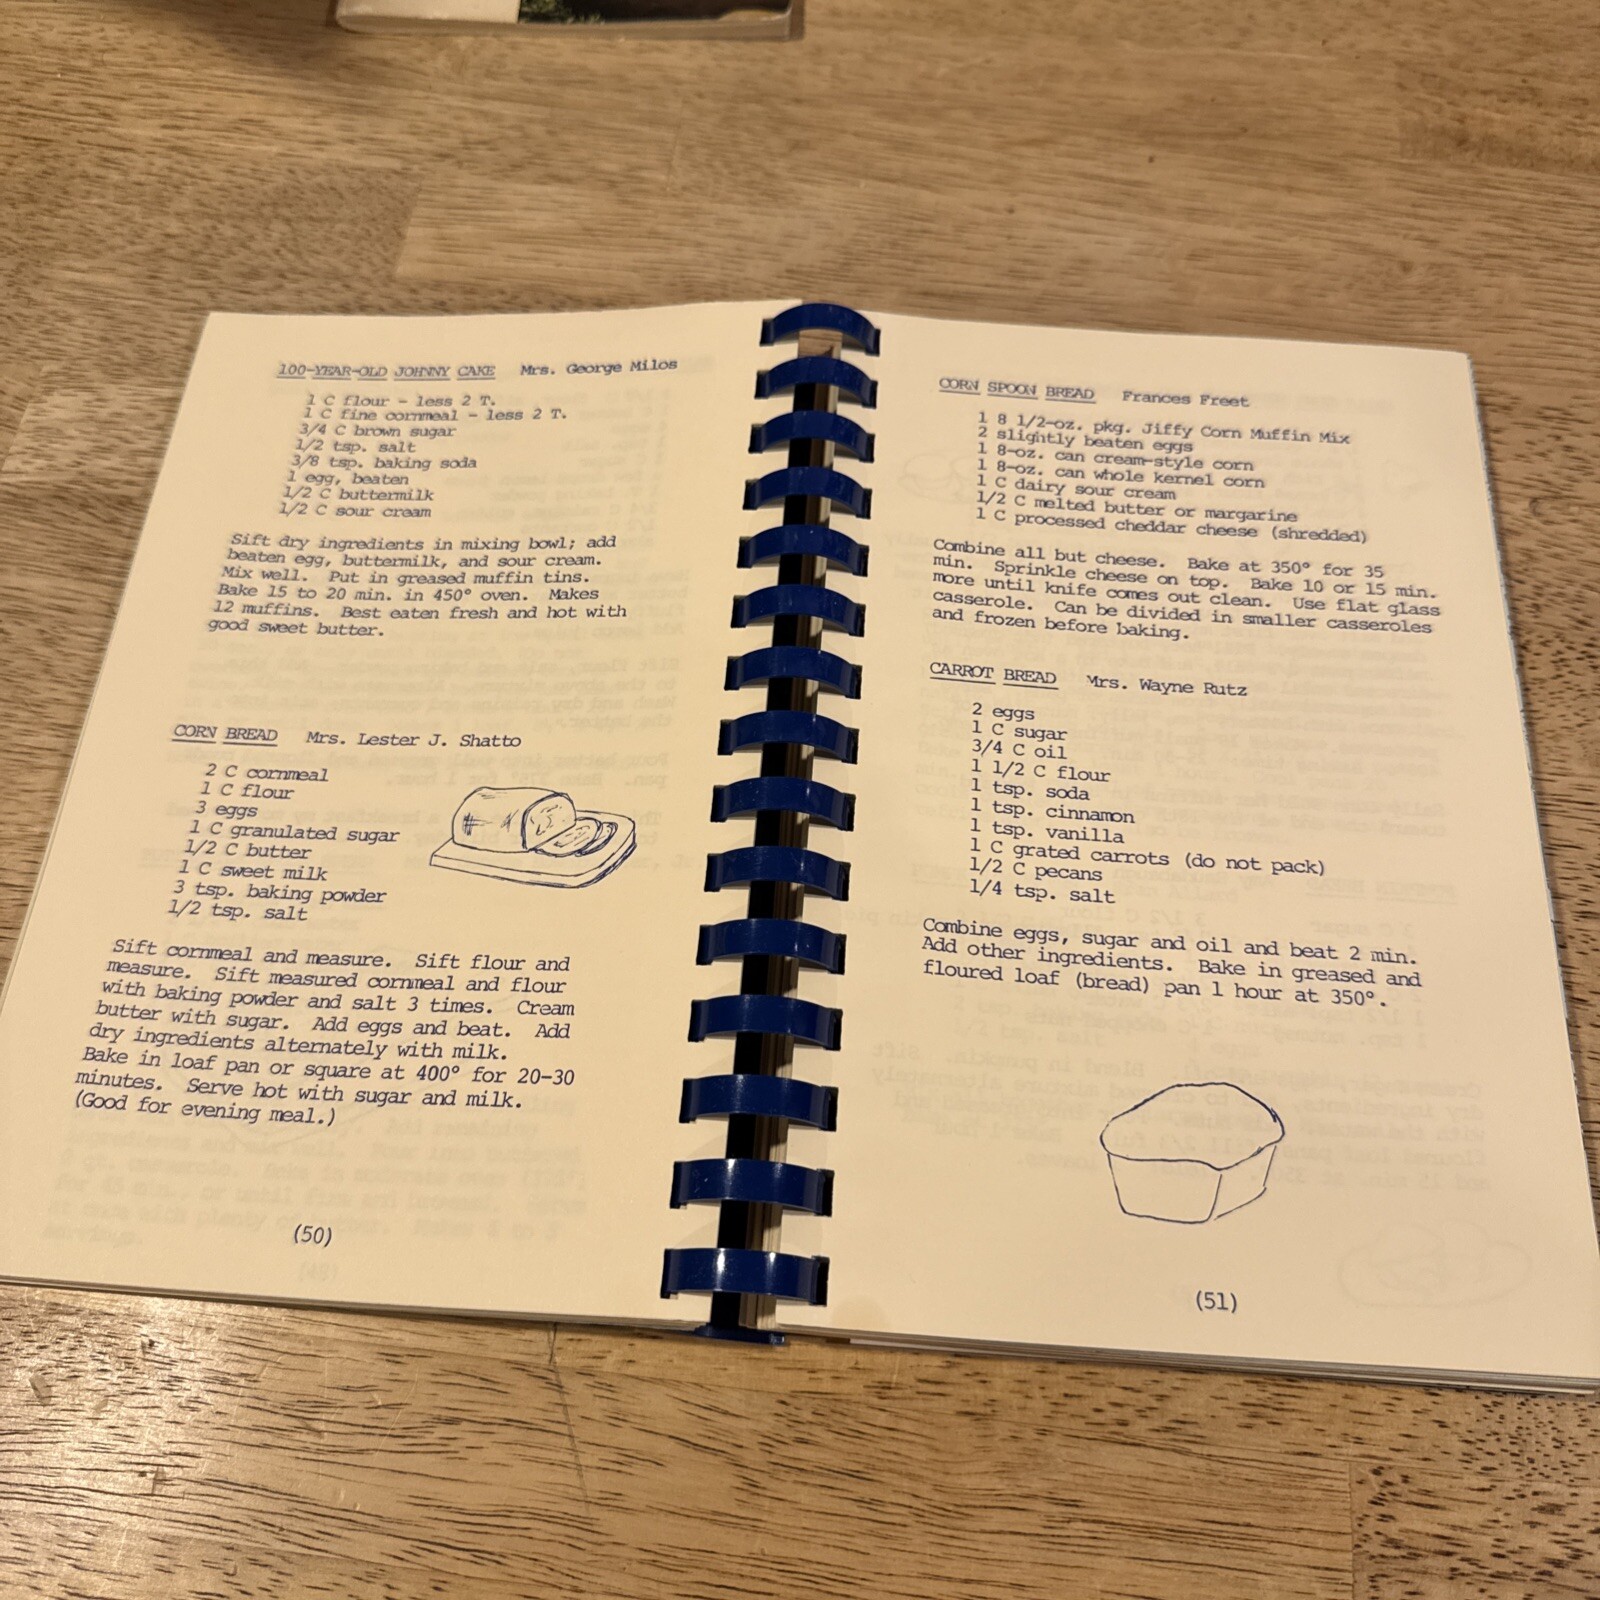 100-YEAR-OLD JOHNNY CAKE Mrs. George Milos
1 C flour - less 2 T.
1 C fine cornmeal - less 2 T.
3/4 C brown sugar
1/2 tsp. salt
3/8 tsp. baking soda
1 egg, beaten
1/2 C buttermilk
1/2 C sour cream
Sift dry ingredients in mixing bowl; add
beaten egg, buttermilk, and sour cream.
Mix well. Put in greased muffin tins.
Bake 15 to 20 min. in 450° oven. Makes
12 muffins. Best eaten fresh and hot with
good sweet butter.
CORN BREAD Mrs. Lester J. Shatto
2 C cornmeal
1 C flour
3 eggs
1 C granulated sugar
1/2 C butter
1 C sweet milk
3 tsp. baking powder
1/2 tsp. salt
Sift cornmeal and measure. Sift flour and
measure. Sift measured cornmeal and flour
with baking powder and salt 3 times. Cream
butter with sugar. Add eggs and beat. Add
dry ingredients alternately with milk.
Bake in loaf pan or square at 400° for 20-30
minutes. Serve hot with sugar and milk.
(Good for evening meal.)
(50)
CORN SPOON BREAD Frances Freet
1 8 1/2-oz. pkg. Jiffy Corn Muffin Mix
2 slightly beaten eggs
1 8-oz. can cream-style corn
1 8-oz. can whole kernel corn
1 C dairy sour cream
1/2 C melted butter or margarine
1 C processed cheddar cheese (shredded)
Combine all but cheese. Bake at 350° for 35
min. Sprinkle cheese on top. Bake 10 or 15 min.
more until knife comes out clean. Use flat glass
casserole. Can be divided in smaller casseroles
and frozen before baking.
CARROT BREAD Mrs. Wayne Rutz
2 eggs
1 C sugar
3/4 C oil
1 1/2 C flour
1 tsp. soda
1 tsp. cinnamon
1 tsp. vanilla
1 C grated carrots (do not pack)
1/2 C pecans
1/4 tsp. salt
Combine eggs, sugar and oil and beat 2 min.
Add other ingredients. Bake in greased and
floured loaf (bread) pan 1 hour at 350°.
(51)